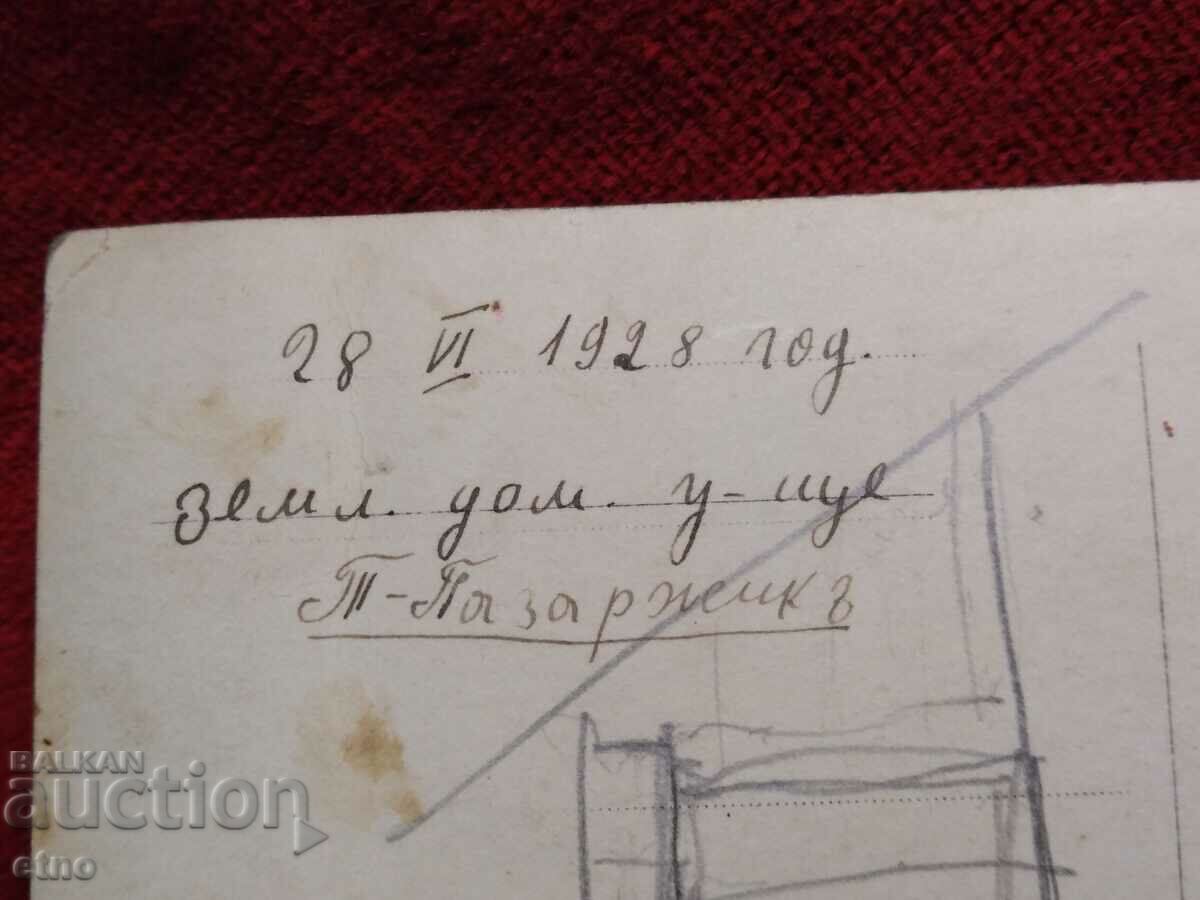 28 VI 1928 год.
земл. дом. у-ще
Т-Пазарджикъ
BALKAN
auction
etno